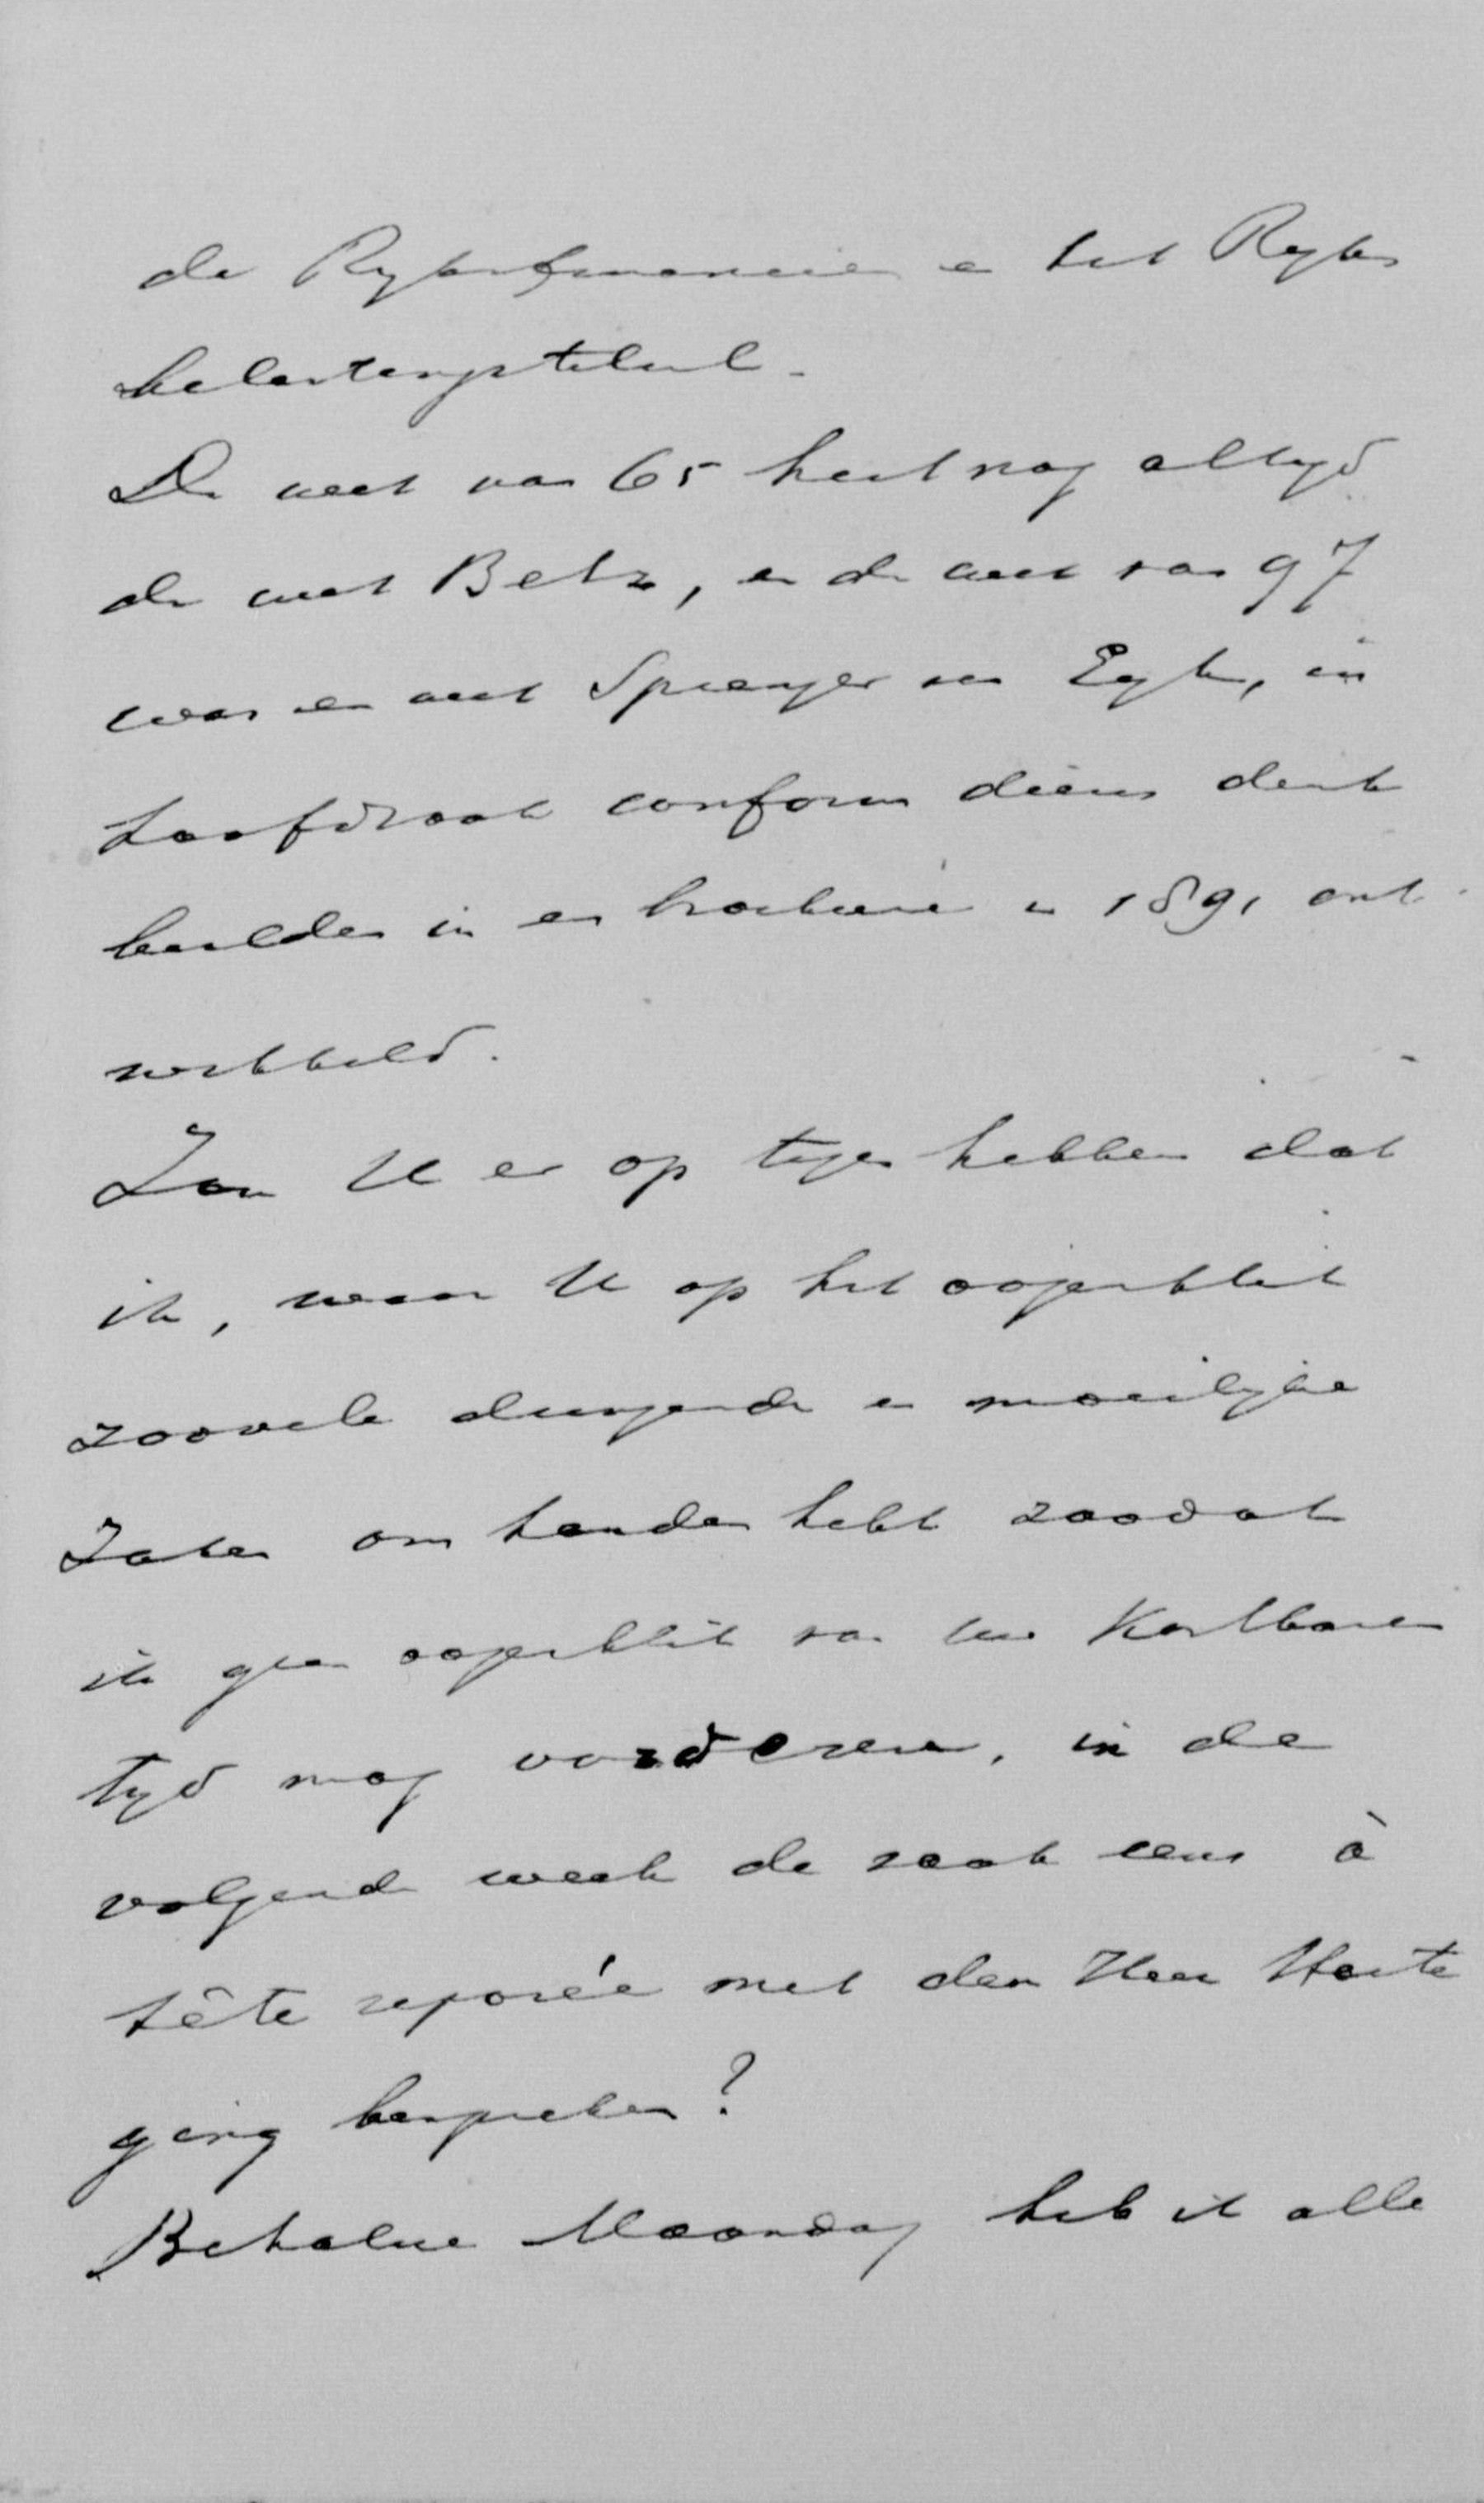 de Rijksfinancien en het Rijks
belastingstelsel.
De wet van 65 heet nog altijd
de wet Betz, en de wet van 97
was een wet Sprenger van Eyk, in
hoofdzaak conform diens denk
beelden in een brochure in 1891 ont
wikkeld.
Zou U er op tegen hebben dat
ik, waar U op het oogenblik
zoovele dringende en moeilijke
zaken om handen hebt zoodat
ik geen oogenblik van uw kostbaren
tijd mag vorderen, in de
volgende week de zaak eens à
tête reposée met den Heer Harte
ging bespreken?
Behalve Maandag heb ik alle